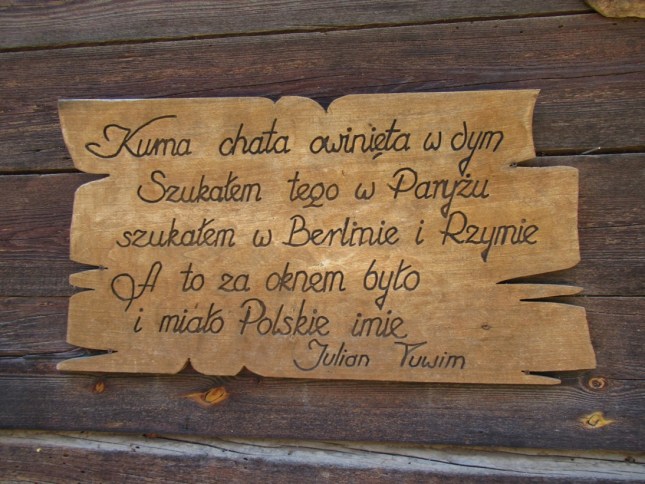 Kurna chata owinięta w dym
Szukałem tego w Paryżu
szukałem w Berlinie i Rzymie
A to za oknem było
i miało Polskie imie
Julian Tuwim